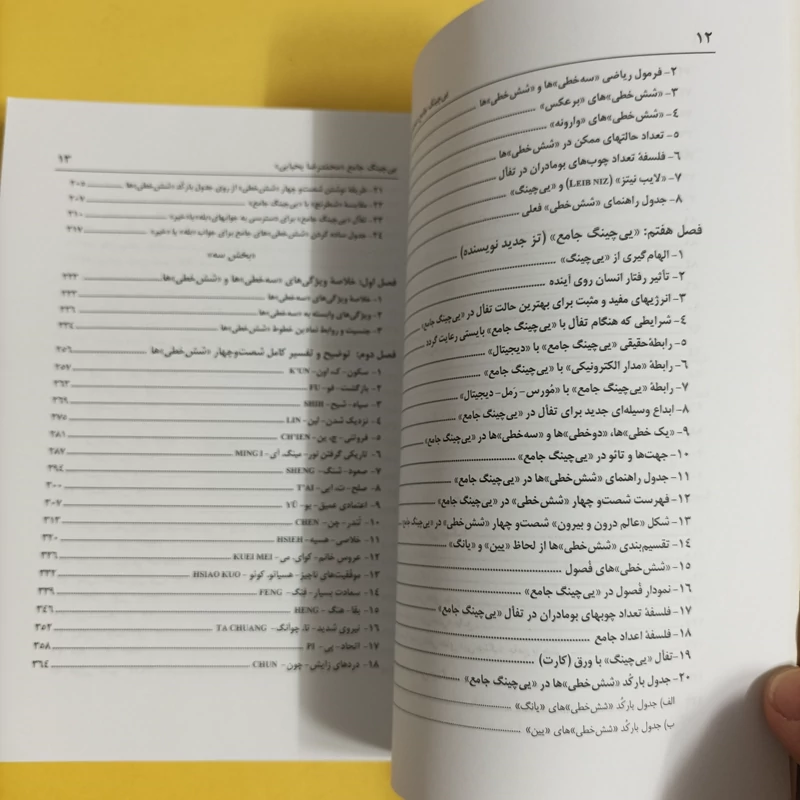 ۱۲
۲- فرمول ریاضی «سه‌خطی»ها و «شش‌خطی»ها
۳- «شش‌خطی»های «برعکس»
۴- «شش‌خطی»های «وارونه»
۵- تعداد حالتهای ممکن در «شش‌خطی»ها
۶- فلسفهٔ تعداد چوب‌های بومادران در تفأل
۷- «لایب نیتز» (LEIB NIZ) و «یی‌چینگ»
۸- جدول راهنمای «شش‌خطی» فعلی
فصل هفتم: «یی‌چینگ جامع» (تز جدید نویسنده)
۱- الهام‌گیری از «یی‌چینگ»
۲- تأثیر رفتار انسان روی آینده
۳- انرژیهای مفید و مثبت برای بهترین حالت تفأل در «یی‌چینگ جامع»
۴- شرایطی که هنگام تفأل با «یی‌چینگ جامع» بایستی رعایت گردد
۵- رابطهٔ حقیقی «یی‌چینگ جامع» با «دیجیتال»
۶- رابطهٔ «مدار الکترونیکی» با «یی‌چینگ جامع»
۷- رابطهٔ «یی‌چینگ جامع» با «مُورس- رَمل- دیجیتال»
۸- ابداع وسیله‌ای جدید برای تفأل در «یی‌چینگ جامع»
۹- «یک خطی»ها، «دوخطی»ها و «سه‌خطی»ها در «یی‌چینگ جامع»
۱۰- جهت‌ها و تائو در «یی‌چینگ جامع»
۱۱- جدول راهنمای «شش‌خطی»ها در «یی‌چینگ جامع»
۱۲- فهرست شصت‌و چهار «شش‌خطی» در «یی‌چینگ جامع»
۱۳- شکل «عالم درون و بیرون» شصت‌و چهار «شش‌خطی» در «یی‌چینگ جامع»
۱۴- تقسیم‌بندی «شش‌خطی»ها از لحاظ «یین» و «یانگ»
۱۵- «شش‌خطی»های فُصول
۱۶- نمودار فُصول در «یی‌چینگ جامع»
۱۷- فلسفهٔ تعداد چوبهای بومادران در تفأل «یی‌چینگ جامع»
۱۸- فلسفهٔ اعداد جامع
۱۹- تفأل «یی‌چینگ» با ورق (کارت)
۲۰- جدول بارکُد «شش‌خطی»ها در «یی‌چینگ جامع»
الف) جدول بارکُد «شش‌خطی»های «یانگ»
ب) جدول بارکُد «شش‌خطی»های «یین»
یی‌چینگ جامع «محمدرضا یحیایی» ۱۳
۲۱- طریقهٔ نوشتن شصت‌و چهار «شش‌خطی» از روی جدول بارکُد «شش‌خطی»ها
۲۲- مقایسهٔ «شطرنج» با «یی‌چینگ جامع» ۲۰۷
۲۳- تفأل «یی‌چینگ جامع» برای دسترسی به جوابهای «بله» یا «خیر» ۲۱۰
۲۴- جدول ساده کردن «شش‌خطی»های جامع برای جواب «بله» یا «خیر» ۲۱۷
«بخش سه»
فصل اول: خلاصهٔ ویژگی‌های «سه‌خطی»ها و «شش‌خطی»ها
۱- خلاصهٔ ویژگی‌های «سه‌خطی»ها
۲- ویژگی‌های وابسته به «سه‌خطی»ها
۳- جنسیت و روابط نمادین خطوط «شش‌خطی»ها
فصل دوم: توضیح و تفسیر کامل شصت‌و‌چهار «شش‌خطی»ها ۲۵۶
۱- سکون- ک، اون- K'UN ۲۵۷
۲- بازگشت- فو- FU ۲۶۳
۳- سپاه- شیه- SHIH ۲۶۹
۴- نزدیک شدن- لین- LIN ۲۷۵
۵- فروتنی- چ، ین- CH'IEN ۲۸۱
۶- تاریکی گرفتن نور- مینگ، آی- MING I ۲۸۷
۷- صعود- شنگ- SHENG ۲۹۴
۸- صلح- ت، ایی- T'AI ۳۰۰
۹- اعتمادی عمیق- یو- YÜ ۳۰۷
۱۰- تُندر- چن- CHEN ۳۱۳
۱۱- خلاصی- هسیه- HSIEH ۳۲۰
۱۲- عروس خانم- کوای، می- KUEI MEI ۳۲۶
۱۳- موفقیت‌های ناچیز- هسیائو، کوئو- HSIAO KUO ۳۳۲
۱۴- سعادت بسیار- فنگ- FENG ۳۳۹
۱۵- بقا- هنگ- HENG ۳۴۶
۱۶- نیروی شدید- تا، چوانگ- TA CHUANG ۳۵۲
۱۷- اتحاد- پی- PI ۳۵۸
۱۸- دردهای زایش- چون- CHUN ۳۶۴